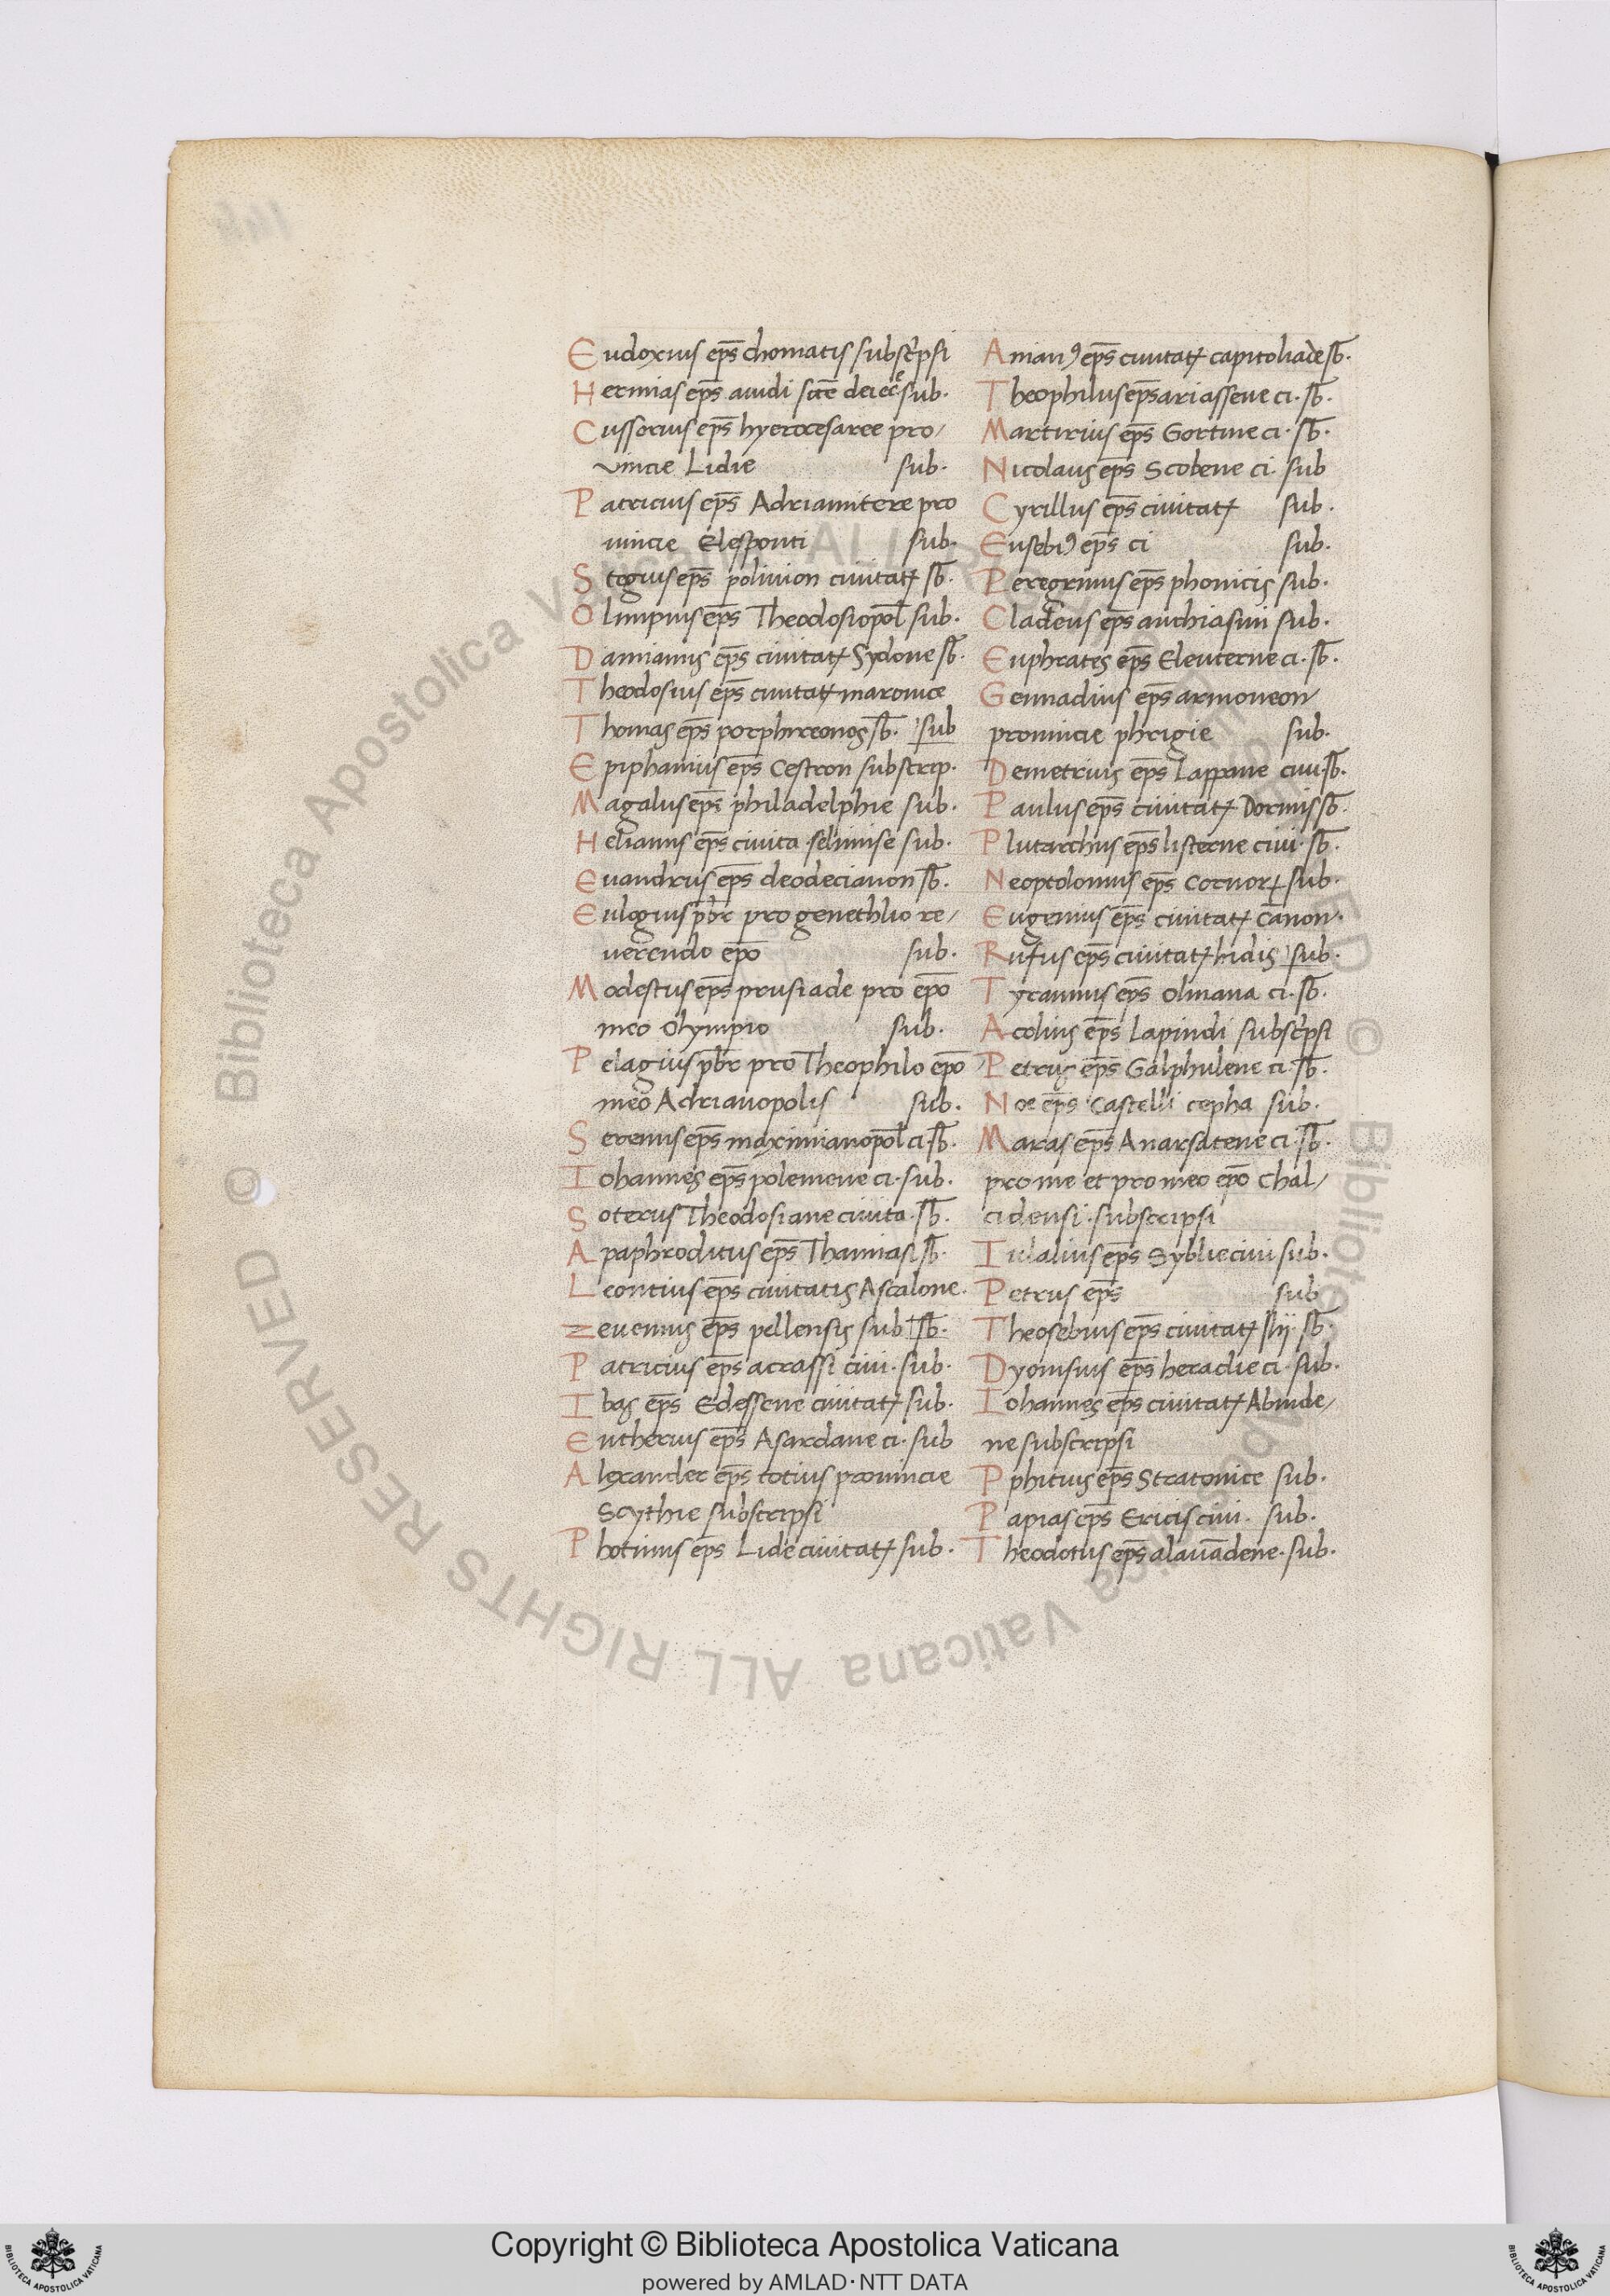 Eudoxius ep̄s chomatis subsc̄ripsi
Hermias ep̄s aiudi sc̄te dei ecc̄e sub.
Cussorius ep̄s hyerocesaree pro/
vincie Lidie sub.
Patricius ep̄s Adriamitere pro
vincie Elesponti sub.
ep̄s polinion civitatꝭ sb̄.
Olimpius ep̄s Theodosiopol̄ sub.
Damianus ep̄s civitatꝭ Sydone sb̄.
Theodosius ep̄s civitatꝭ maronice
Thomas ep̄s porphireonos sb̄. sub
Epiphanius ep̄s Cestron subscrip.
Magalus ep̄s philadelphie sub.
Helianus ep̄s civita. selinise sub.
Evandrus ep̄s deodecianon sb̄.
Eulogius pb̄r pro genethlio re/
verendo ep̄o sub.
Modestus ep̄s prusiade pro ep̄o
meo Olympio sub.
Pelagius pb̄r pro Theophilo ep̄o
meo Adrianopolis sub.
Serenus ep̄s maximianopol̄ ci sb̄.
Iohannes ep̄s polemone ci. sub.
Soterus Theodosiane civita. sb̄.
Apaphroditus ep̄s Thamiasi sb̄.
Leontius ep̄s civitatis Ascalone.
Zevenius ep̄s pellensis sub sb̄.
Patricius ep̄s acrassi civi. sub.
Ibas ep̄s Edessene civitatꝭ sub.
Eutherius ep̄s Asardane ci. sub
Alexander ep̄s totius provincie
Scythie subscripsi
Photinus ep̄s Lide civitatꝭ sub.
Anianꝰ ep̄s civitatꝭ capitoliade sb̄.
Theophilus ep̄s ariassene ci. sb̄.
Martirius ep̄s Gortine ci. sb̄.
Nicolaus ep̄s Scobene ci. sub
Cyrillus ep̄s civitatꝭ sub.
Eusebiꝰ ep̄s ci sub.
Peregrinus ep̄s phonicis sub.
Cladeus ep̄s anchiasmi sub.
Euphrates ep̄s Eleuterne ci. sb̄.
Gennadius ep̄s armoneon/
provincie phrigie sub.
Demetrius ep̄s Lappane civi sb̄.
Paulus ep̄s civitatꝭ Dormis sb̄.
Plutarchus ep̄s listerne civi. sb̄.
Neoptolomius ep̄s sub.
Eugenius ep̄s civitatꝭ canon.
Rufus ep̄s civitatꝭ hidis sub.
Tyrannus ep̄s olmana ci. sb̄.
Acolius ep̄s Lapindi subsc̄ripsi
Petrus ep̄s Galphulene ci. sb̄.
Noe ep̄s Castelli cepha sub.
Maras ep̄s Anarsatene ci. sb̄.
pro me et pro meo ep̄o Chal/
cidensi. subscripsi
Iulalius ep̄s Syblie civi sub.
Petrus ep̄s sub
Theosebius ep̄s civitatꝭ sb̄.
Dyonisius ep̄s heraclie ci. sub.
Iohannes ep̄s civitatꝭ Abinde/
ne subscripsi
Pphitus ep̄s Stratonice sub.
Papias ep̄s Ericis civi. sub.
Theodotus ep̄s alavādene. sub.
© Biblioteca Apostolica Vaticana ALL RIGHTS RESERVED
Copyright © Biblioteca Apostolica Vaticana
powered by AMLAD·NTT DATA